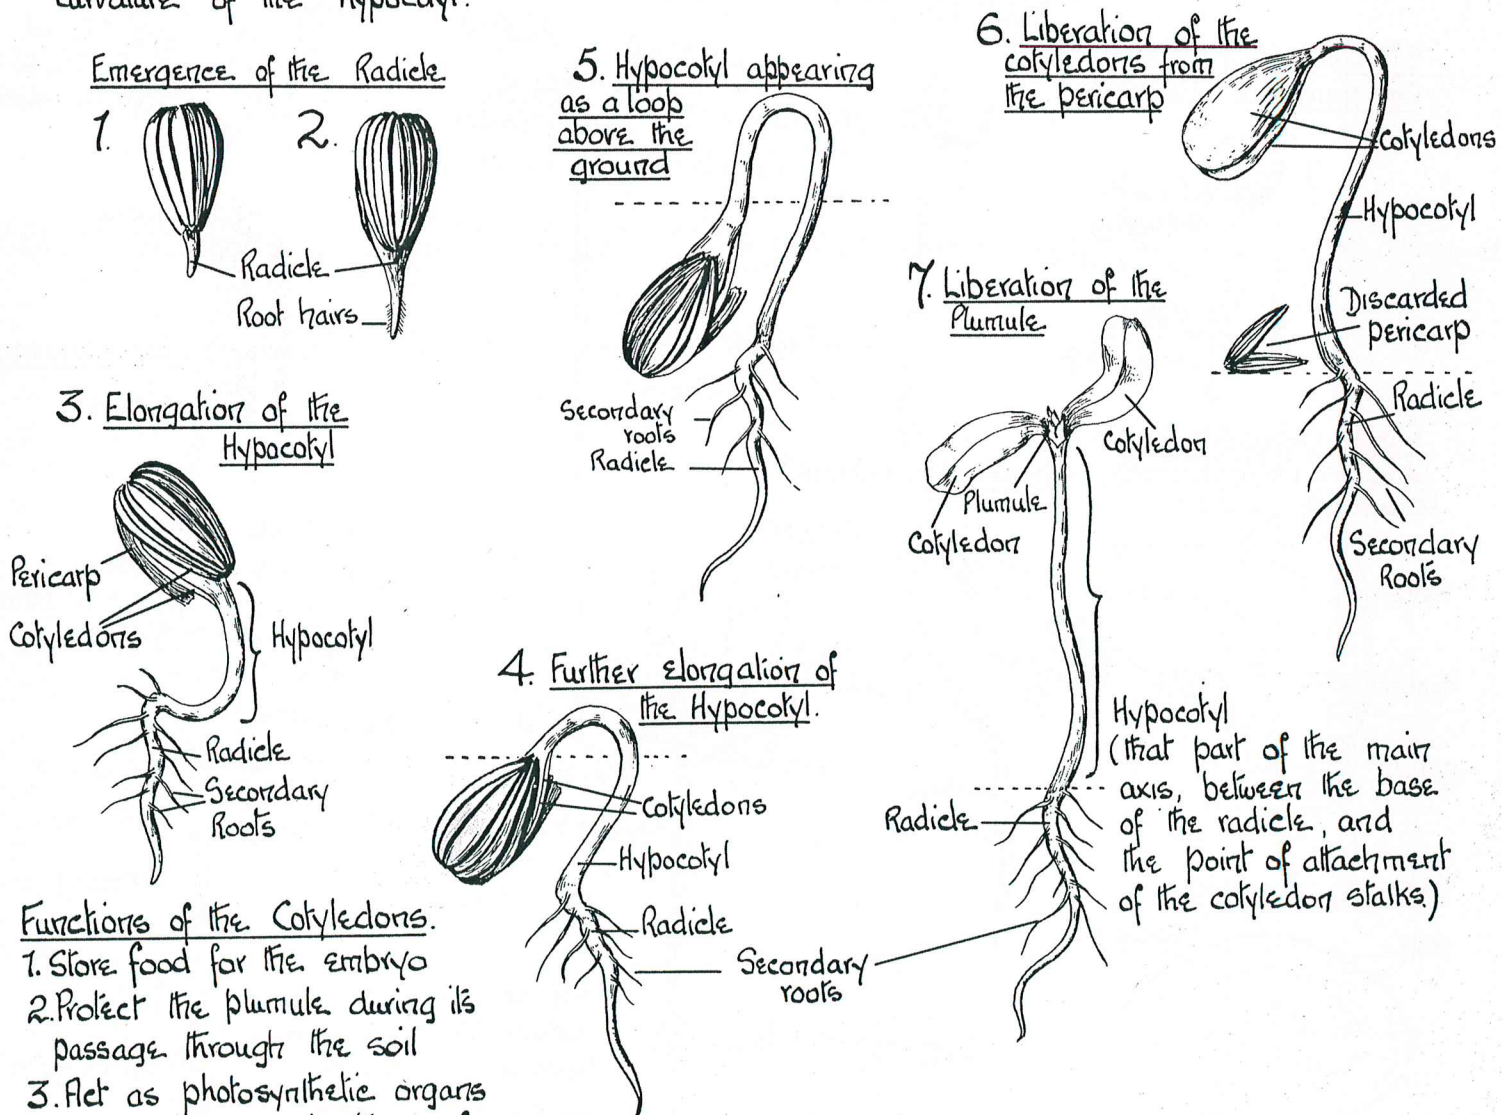 curvature of the hypocotyl.
Emergence of the Radicle
1.
2.
Radicle
Root hairs
3. Elongation of the
Hypocotyl
Pericarp
Cotyledons
Hypocotyl
Radicle
Secondary
Roots
Functions of the Cotyledons.
1. Store food for the embryo
2. Protect the plumule during its
passage through the soil
3. Act as photosynthetic organs
4. Further elongation of
the Hypocotyl.
Cotyledons
Hypocotyl
Radicle
Secondary
roots
5. Hypocotyl appearing
as a loop
above the
ground
Secondary
roots
Radicle
6. Liberation of the
cotyledons from
the pericarp
Cotyledons
Hypocotyl
Discarded
pericarp
Radicle
Secondary
Roots
7. Liberation of the
Plumule
Cotyledon
Plumule
Cotyledon
Hypocotyl
(that part of the main
axis, between the base
of the radicle, and
the point of attachment
of the cotyledon stalks.)
Radicle